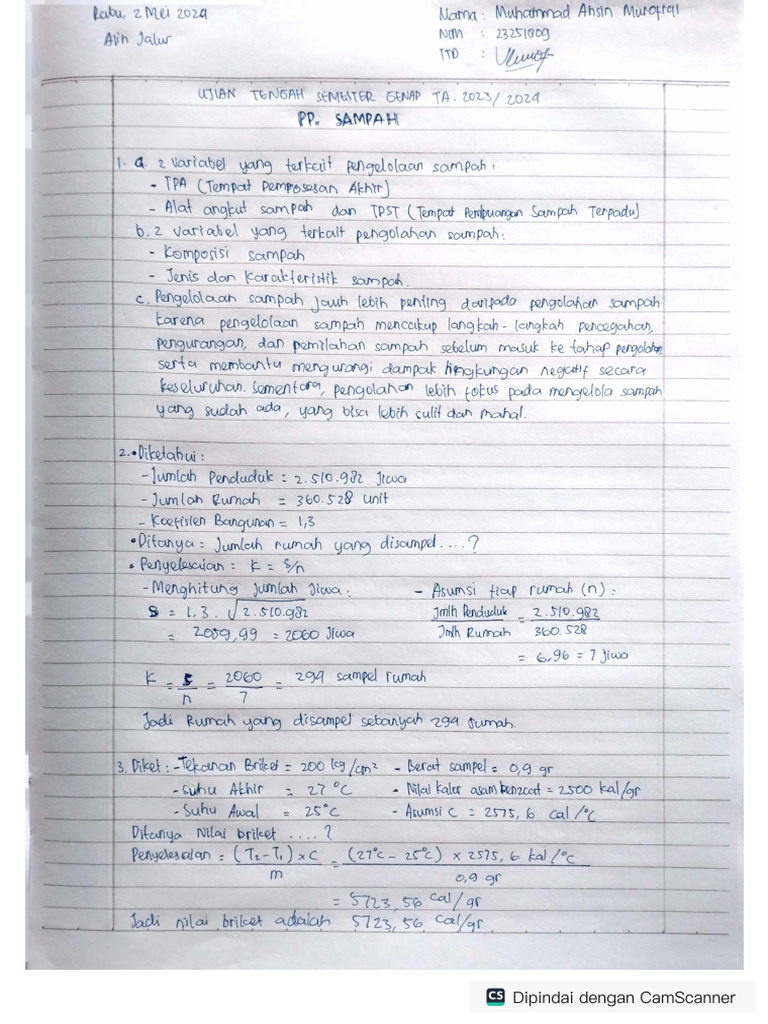 Rabu, 2 Mei 2024
Alih Jalur
Nama : Muhammad Ahsin Murofiqi
NIM : 23251009
TTD :
UJIAN TENGAH SEMESTER GENAP TA. 2023/2024
PP. SAMPAH
1. a. 2 variabel yang terkait pengelolaan sampah :
- TPA (Tempat Pemposesan Akhir)
- Alat angkut sampah dan TPST (Tempat Pembuangan Sampah Terpadu)
b. 2 variabel yang terkait pengolahan sampah:
- Komposisi sampah
- Jenis dan Karakteristik sampah.
c. Pengelolaan sampah jauh lebih penting daripada pengolahan sampah
karena pengelolaan sampah mencakup langkah-langkah pencegahan,
pengurangan, dan pemilahan sampah sebelum masuk ke tahap pengolahan
serta membantu mengurangi dampak lingkungan negatif secara
keseluruhan. Sementara, pengolahan lebih fokus pada mengelola sampah
yang sudah ada, yang bisa lebih sulit dan mahal.
2. • Diketahui :
- Jumlah Penduduk = 2.510.982 Jiwa
- Jumlah Rumah = 360.528 unit
- Koefisien Bangunan = 1,3
• Ditanya = Jumlah rumah yang disampel....?
• Penyelesaian : K = S/n
- Menghitung Jumlah Jiwa :
- Asumsi tiap rumah (n) :
S = 1,3 . √2.510.982
Jmlh Penduduk = 2.510.982
= 2059,99 = 2060 Jiwa
Jmlh Rumah 360.528
= 6,96 = 7 Jiwa
K = S = 2060 = 294 sampel rumah
n 7
Jadi Rumah yang disampel sebanyak 294 rumah.
3. Diket : - Tekanan Briket = 200 kg/cm² - Berat sampel = 0,9 gr
- Suhu Akhir = 27 °C - Nilai kalor asam benzoat = 2500 kal/gr
- Suhu Awal = 25°C - Asumsi C = 2575,6 cal/°C
Ditanya Nilai briket ....?
Penyelesaian = (T2-T1) x C = (27°C - 25°C) x 2575,6 kal/°C
m 0,9 gr
= 5723,56 cal/gr
Jadi nilai briket adalah 5723,56 cal/gr
CS Dipindai dengan CamScanner